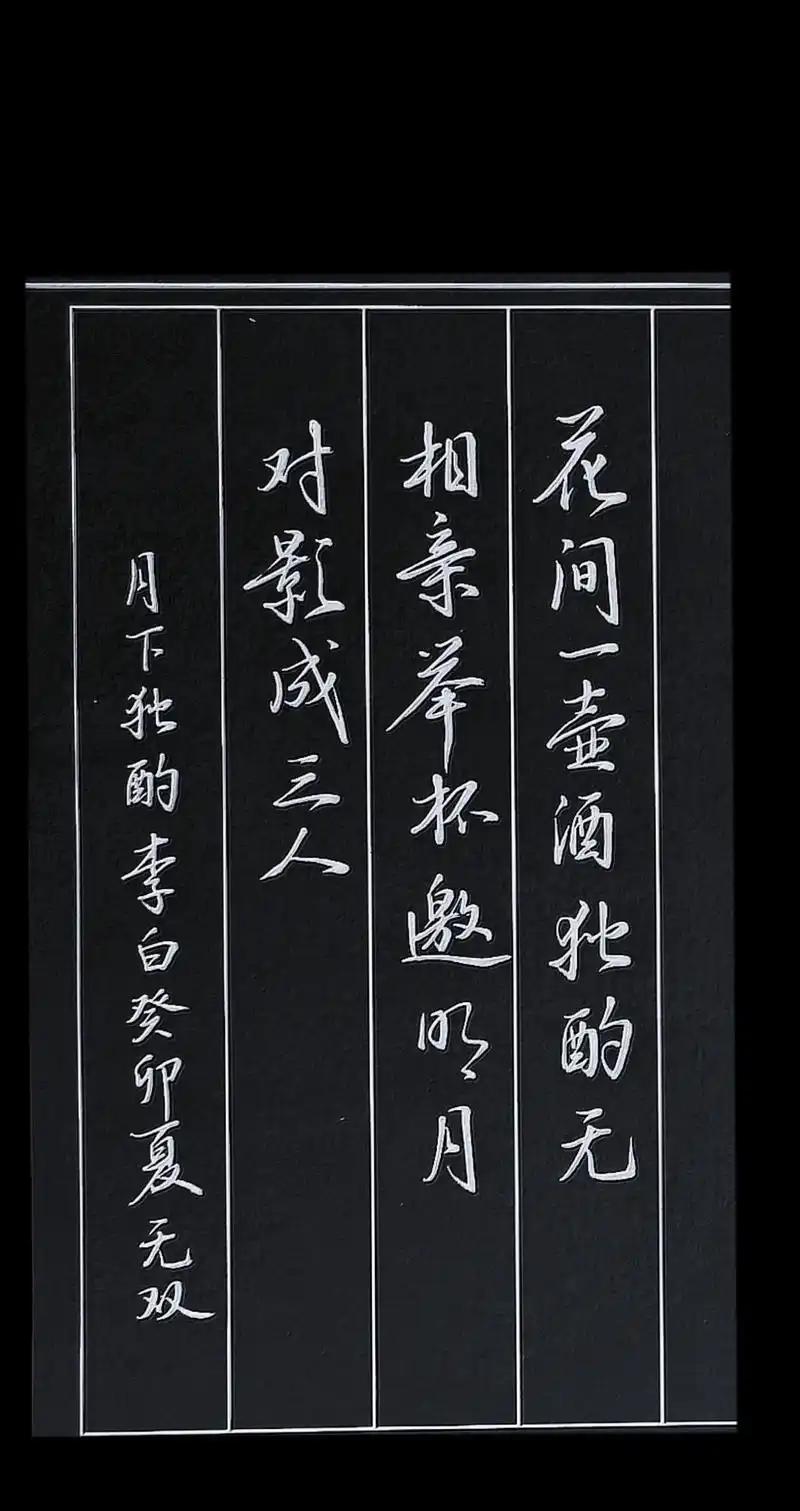 花间一壶酒独酌无
相亲举杯邀明月
对影成三人
月下独酌李白癸卯夏无双